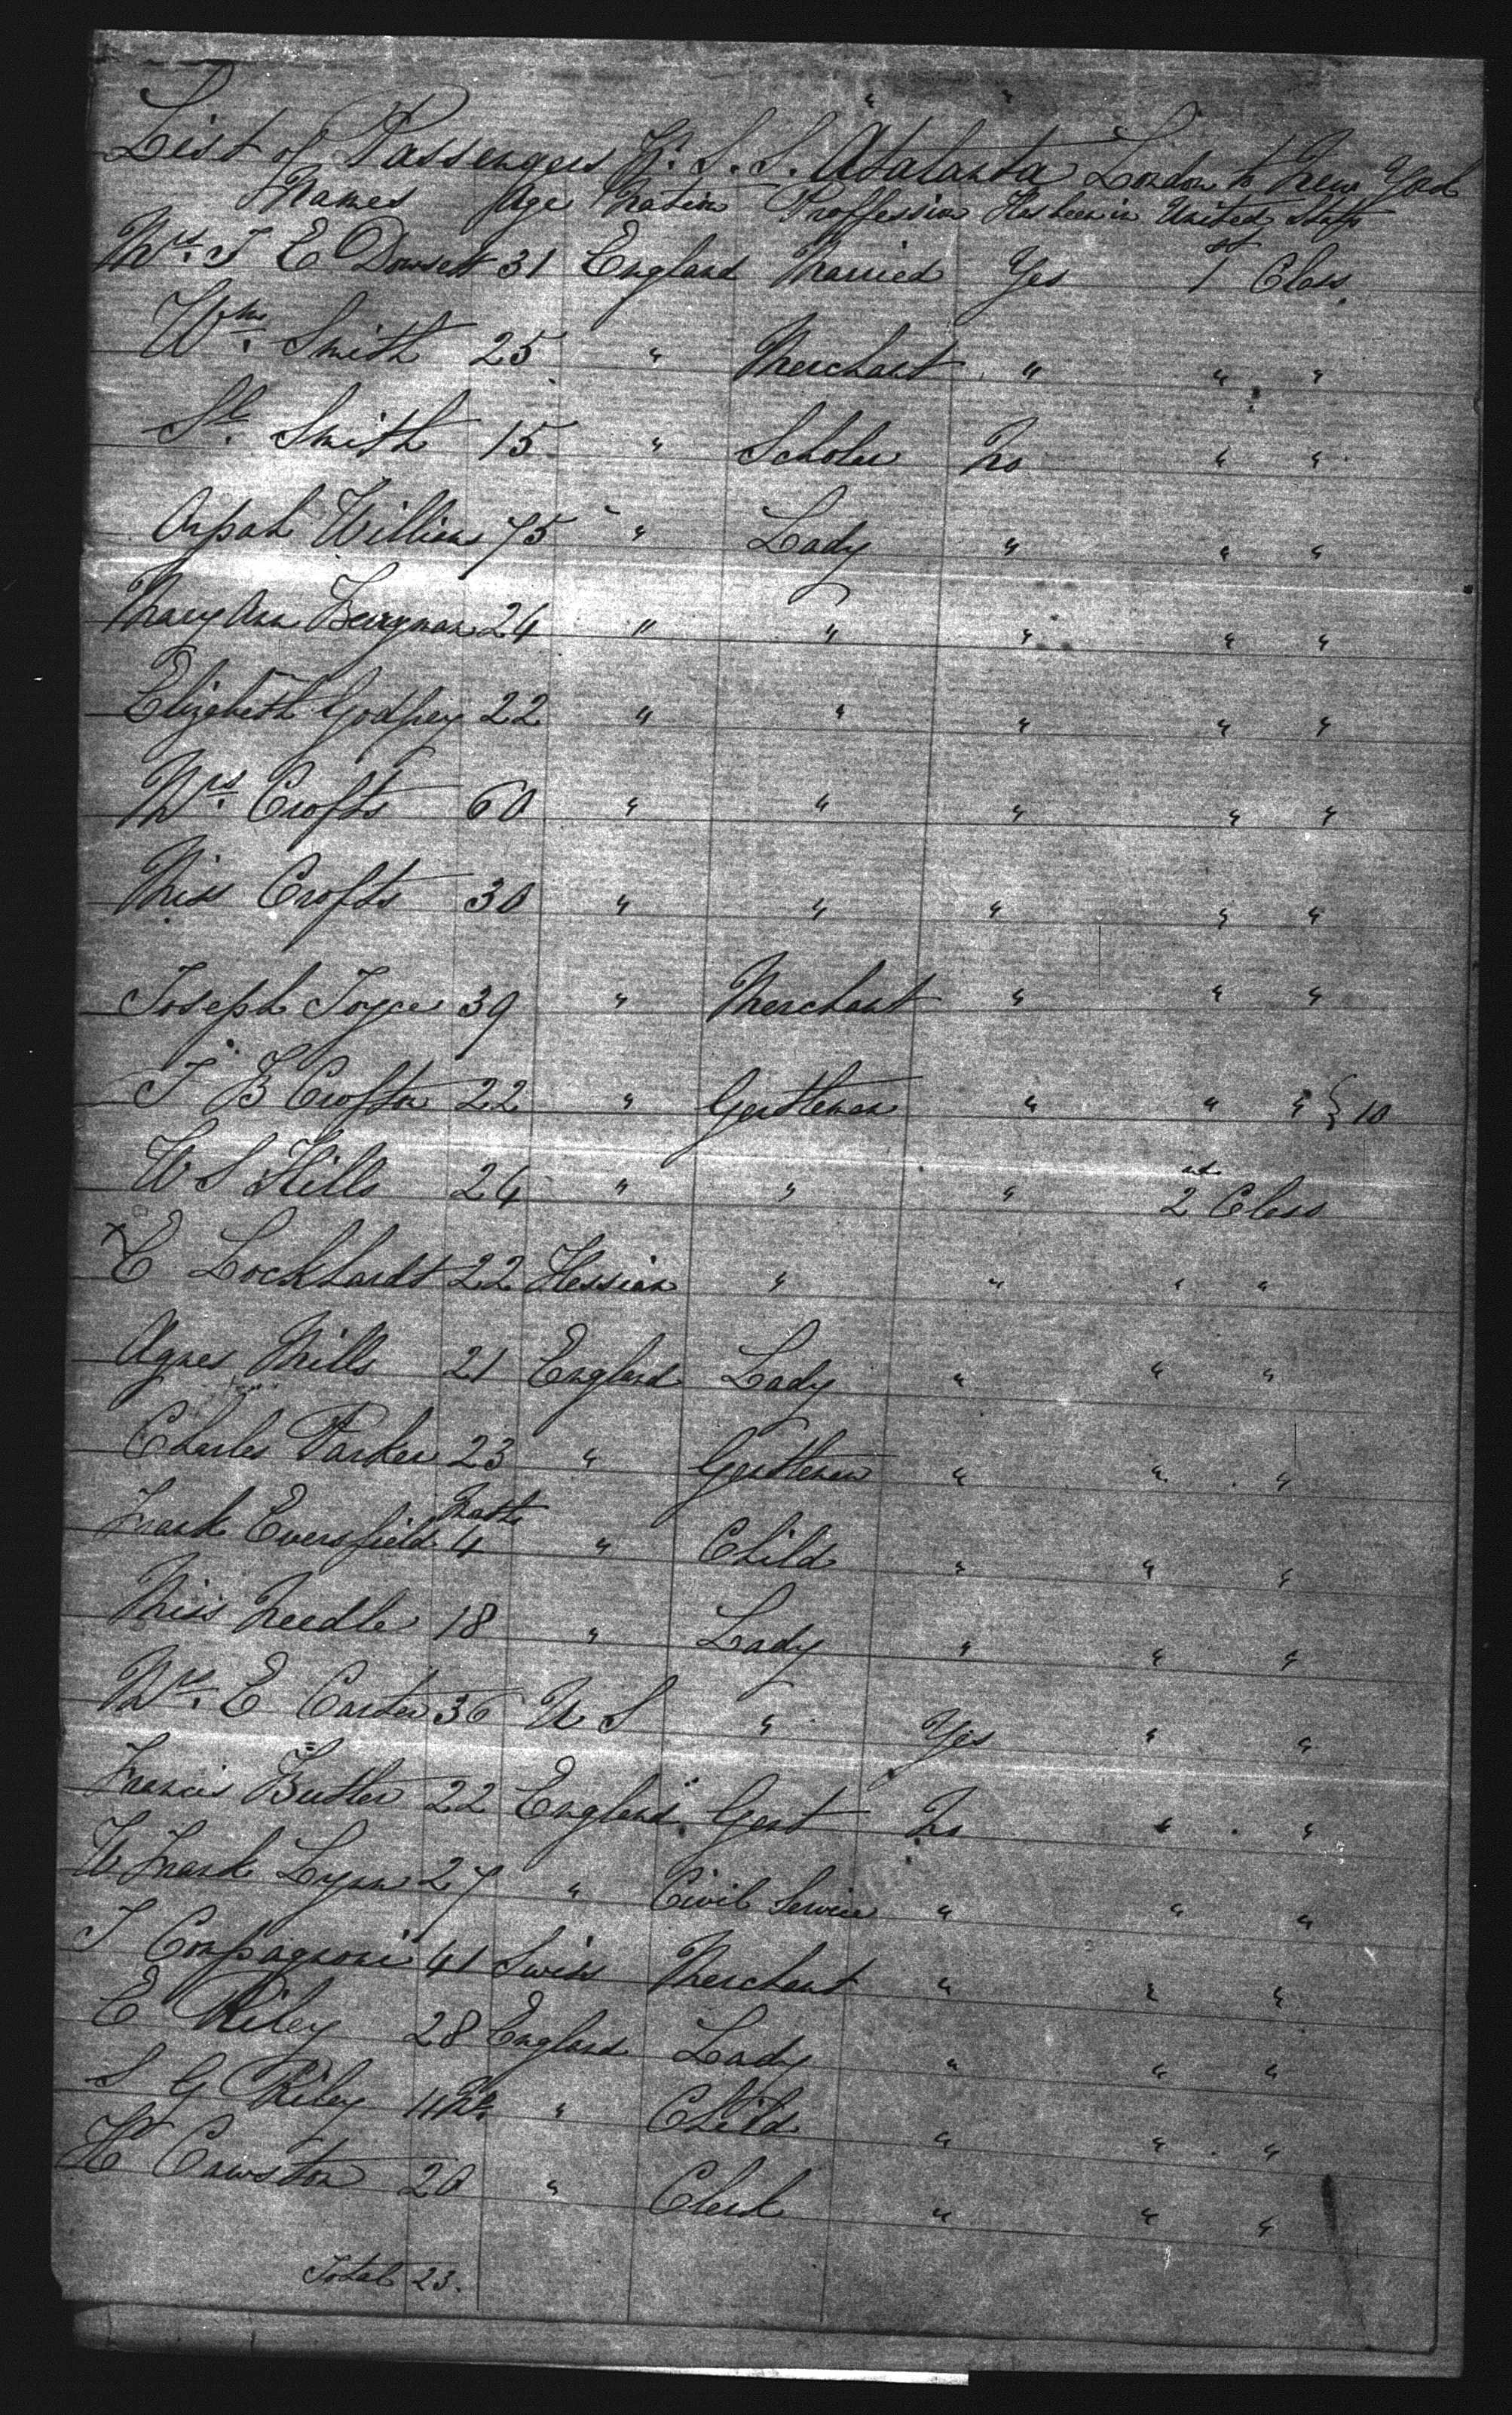 List of Passengers Pr. S. S. Atalanta London to New York
Names Age Nation Proffession Has been in United States
Mrs. T E Dowsett 31 England Married Yes 1st Class
Wm. Smith 25 " Merchant " " "
Sl. Smith 15 " Scholar No " "
Orpah William 75 " Lady " " "
Mary Ann Berryman 24 " " " " "
Elizabeth Godfrey 22 " " " " "
Mrs. Crofts 60 " " " " "
Miss Crofts 30 " " " " "
Joseph Joyce 39 " Merchant " " "
T B Crofton 22 " Gentleman " " " } 10
W S Hills 24 " " " 2nd Class
x E Lockhardt 22 Hessian " " " "
Agnes Mills 21 England Lady " " "
Charles Parker 23 " Gentleman " " "
Frank Eversfield 4 Months " Child " " "
Miss Needle 18 " Lady " " "
Mrs. E Carter 36 U S " Yes " "
Francis Butler 22 England Gent No " "
W Frank Lynn 27 " Civil Service " " "
T Compagnoni 41 Swiss Merchant " " "
E Riley 28 England Lady " " "
S G Riley 11 Ms. " Child " " "
H Cawston 20 " Clerk " " "
Total 23.